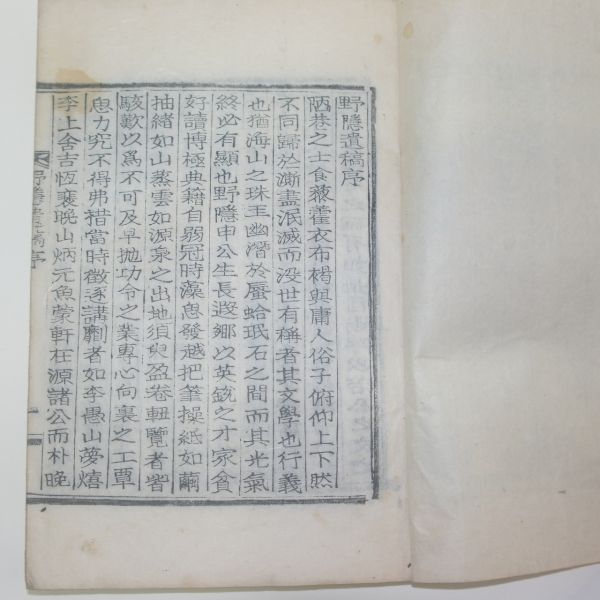 野隱遺稿序
陋巷之士食藜藿衣布褐與庸人俗子俯仰上下然
不同歸於澌盡泯滅而没世有稱者其文學也行義
也猶海山之珠玉幽潛於蜃蛤珉石之間而其光氣
終必有顯也野隱申公生長遐鄉以英銳之才家貧
好讀博極典籍自弱冠時藻思發越把筆操紙如繭
抽緖如山蒸雲如源泉之出地須臾盈卷軸覽者皆
駭歎以爲不可及早抛功令之業專心向裏之工覃
思力究不得弗措當時徵逐講劘者如李愚山夢熺
李上舍吉恆裵晩山炳元魚蒙軒在源諸公而朴晩
野隱遺稿序
一